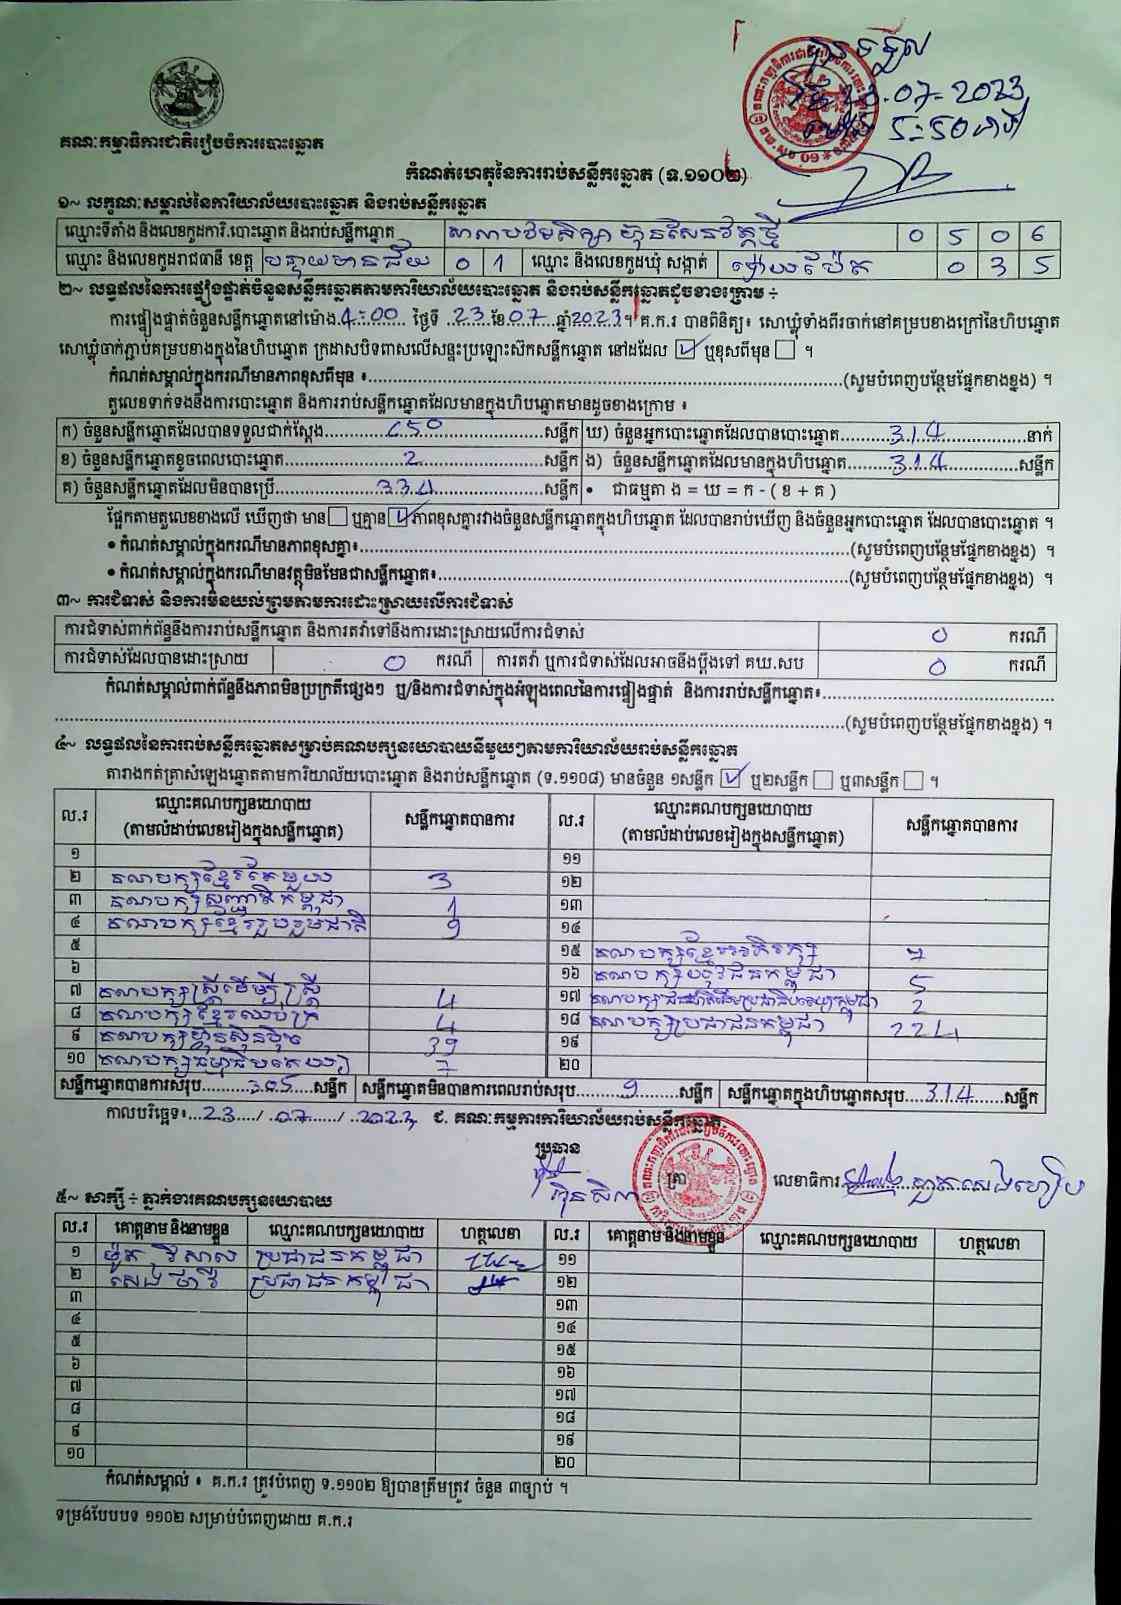 បានទទួល
ថ្ងៃ 23.07-2023
ម៉ោង 5:50 នាទី
គណៈកម្មាធិការជាតិរៀបចំការបោះឆ្នោត
កំណត់ហេតុនៃការរាប់សន្លឹកឆ្នោត (ទ.១១០២)
១~ លក្ខណៈសម្គាល់នៃការិយាល័យបោះឆ្នោត និងរាប់សន្លឹកឆ្នោត
ឈ្មោះទីតាំង និងលេខកូដការិ.បោះឆ្នោត និងរាប់សន្លឹកឆ្នោត សាលាបឋមសិក្សា ហ៊ុនសែនវត្តថ្មី 0 5 0 6
ឈ្មោះ និងលេខកូដរាជធានី ខេត្ត បន្ទាយមានជ័យ 0 1 ឈ្មោះ និងលេខកូដឃុំ សង្កាត់ ប៉ោយប៉ែត 0 3 5
២~ លទ្ធផលនៃការផ្ទៀងផ្ទាត់ចំនួនសន្លឹកឆ្នោតតាមការិយាល័យបោះឆ្នោត និងរាប់សន្លឹកឆ្នោតដូចខាងក្រោម ÷
ការផ្ទៀងផ្ទាត់ចំនួនសន្លឹកឆ្នោតនៅម៉ោង 4:00 ថ្ងៃទី 23 ខែ 07 ឆ្នាំ 2023។ គ.ក.រ បានពិនិត្យ៖ សោឃ្លុំទាំងពីរចាក់នៅគម្របខាងក្រៅនៃហិបឆ្នោត
សោឃ្លុំចាក់ភ្ជាប់គម្របខាងក្នុងនៃហិបឆ្នោត ក្រដាសបិទពាសលើសន្ទះប្រឡោះស៊កសន្លឹកឆ្នោត នៅដដែល ☑ ឬខុសពីមុន ☐ ។
កំណត់សម្គាល់ក្នុងករណីមានភាពខុសពីមុន ៖ (សូមបំពេញបន្ថែមផ្នែកខាងខ្នង) ។
តួលេខទាក់ទងនឹងការបោះឆ្នោត និងការរាប់សន្លឹកឆ្នោតដែលមានក្នុងហិបឆ្នោតមានដូចខាងក្រោម ៖
ក) ចំនួនសន្លឹកឆ្នោតដែលបានទទួលជាក់ស្តែង 650 សន្លឹក ឃ) ចំនួនអ្នកបោះឆ្នោតដែលបានបោះឆ្នោត 314 នាក់
ខ) ចំនួនសន្លឹកឆ្នោតខូចពេលបោះឆ្នោត 2 សន្លឹក ង) ចំនួនសន្លឹកឆ្នោតដែលមានក្នុងហិបឆ្នោត 314 សន្លឹក
គ) ចំនួនសន្លឹកឆ្នោតដែលមិនបានប្រើ 334 សន្លឹក • ជាធម្មតា ង = ឃ = ក - ( ខ + គ )
ផ្អែកតាមតួលេខខាងលើ ឃើញថា មាន ☐ ឬគ្មាន ☑ ភាពខុសគ្នារវាងចំនួនសន្លឹកឆ្នោតក្នុងហិបឆ្នោត ដែលបានរាប់ឃើញ និងចំនួនអ្នកបោះឆ្នោត ដែលបានបោះឆ្នោត ។
• កំណត់សម្គាល់ក្នុងករណីមានភាពខុសគ្នា៖ (សូមបំពេញបន្ថែមផ្នែកខាងខ្នង) ។
• កំណត់សម្គាល់ក្នុងករណីមានវត្ថុមិនមែនជាសន្លឹកឆ្នោត៖ (សូមបំពេញបន្ថែមផ្នែកខាងខ្នង) ។
៣~ ការជំទាស់ និងការមិនយល់ព្រមតាមការដោះស្រាយលើការជំទាស់
ការជំទាស់ពាក់ព័ន្ធនឹងការរាប់សន្លឹកឆ្នោត និងការតវ៉ាទៅនឹងការដោះស្រាយលើការជំទាស់ 0 ករណី
ការជំទាស់ដែលបានដោះស្រាយ 0 ករណី ការតវ៉ា ឬការជំទាស់ដែលអាចនឹងប្តឹងទៅ គឃ.សប 0 ករណី
កំណត់សម្គាល់ពាក់ព័ន្ធនឹងភាពមិនប្រក្រតីផ្សេងៗ ឬ/និងការជំទាស់ក្នុងអំឡុងពេលនៃការផ្ទៀងផ្ទាត់ និងការរាប់សន្លឹកឆ្នោត៖
(សូមបំពេញបន្ថែមផ្នែកខាងខ្នង) ។
៤~ លទ្ធផលនៃការរាប់សន្លឹកឆ្នោតសម្រាប់គណបក្សនយោបាយនីមួយៗតាមការិយាល័យរាប់សន្លឹកឆ្នោត
តារាងកត់ត្រាសំឡេងឆ្នោតតាមការិយាល័យបោះឆ្នោត និងរាប់សន្លឹកឆ្នោត (ទ.១១០៨) មានចំនួន ១សន្លឹក ☑ ឬ២សន្លឹក ☐ ឬ៣សន្លឹក ☐ ។
ល.រ ឈ្មោះគណបក្សនយោបាយ (តាមលំដាប់លេខរៀងក្នុងសន្លឹកឆ្នោត) សន្លឹកឆ្នោតបានការ ល.រ ឈ្មោះគណបក្សនយោបាយ (តាមលំដាប់លេខរៀងក្នុងសន្លឹកឆ្នោត) សន្លឹកឆ្នោតបានការ
១ ១១
២ គណបក្សខ្មែរតែមួយ 3 ១២
៣ គណបក្សសញ្ជាតិកម្ពុជា 1 ១៣
៤ គណបក្សខ្មែររួបរួមជាតិ 9 ១៤
៥ ១៥ គណបក្សខ្មែរអភិរក្ស
៦ ១៦ គណបក្សយុវជនកម្ពុជា 5
៧ គណបក្សស្ត្រីដើម្បីស្ត្រី 4 ១៧ 2
៨ គណបក្សខ្មែរឈប់ក្រ 4 ១៨ គណបក្សប្រជាជនកម្ពុជា 224
៩ គណបក្សហ្វ៊ុនស៊ិនប៉ិច 39 ១៩
១០ គណបក្សធម្មាធិបតេយ្យ 7 ២០
សន្លឹកឆ្នោតបានការសរុប 305 សន្លឹក សន្លឹកឆ្នោតមិនបានការពេលរាប់សរុប 9 សន្លឹក សន្លឹកឆ្នោតក្នុងហិបឆ្នោតសរុប 314 សន្លឹក
កាលបរិច្ឆេទ៖ 23 / 07 / 2023 ជ. គណៈកម្មការការិយាល័យរាប់សន្លឹកឆ្នោត
ប្រធាន
ត្រា លេខាធិការ
៥~ សាក្សី ÷ ភ្នាក់ងារគណបក្សនយោបាយ
ល.រ គោត្តនាម និងនាមខ្លួន ឈ្មោះគណបក្សនយោបាយ ហត្ថលេខា ល.រ គោត្តនាម និងនាមខ្លួន ឈ្មោះគណបក្សនយោបាយ ហត្ថលេខា
១ ម៉ូត វិសាល ប្រជាជនកម្ពុជា ១១
២ សេង ថាវី ប្រជាជនកម្ពុជា ១២
៣ ១៣
៤ ១៤
៥ ១៥
៦ ១៦
៧ ១៧
៨ ១៨
៩ ១៩
១០ ២០
កំណត់សម្គាល់ ៖ គ.ក.រ ត្រូវបំពេញ ទ.១១០២ ឱ្យបានត្រឹមត្រូវ ចំនួន ៣ច្បាប់ ។
ទម្រង់បែបបទ ១១០២ សម្រាប់បំពេញដោយ គ.ក.រ